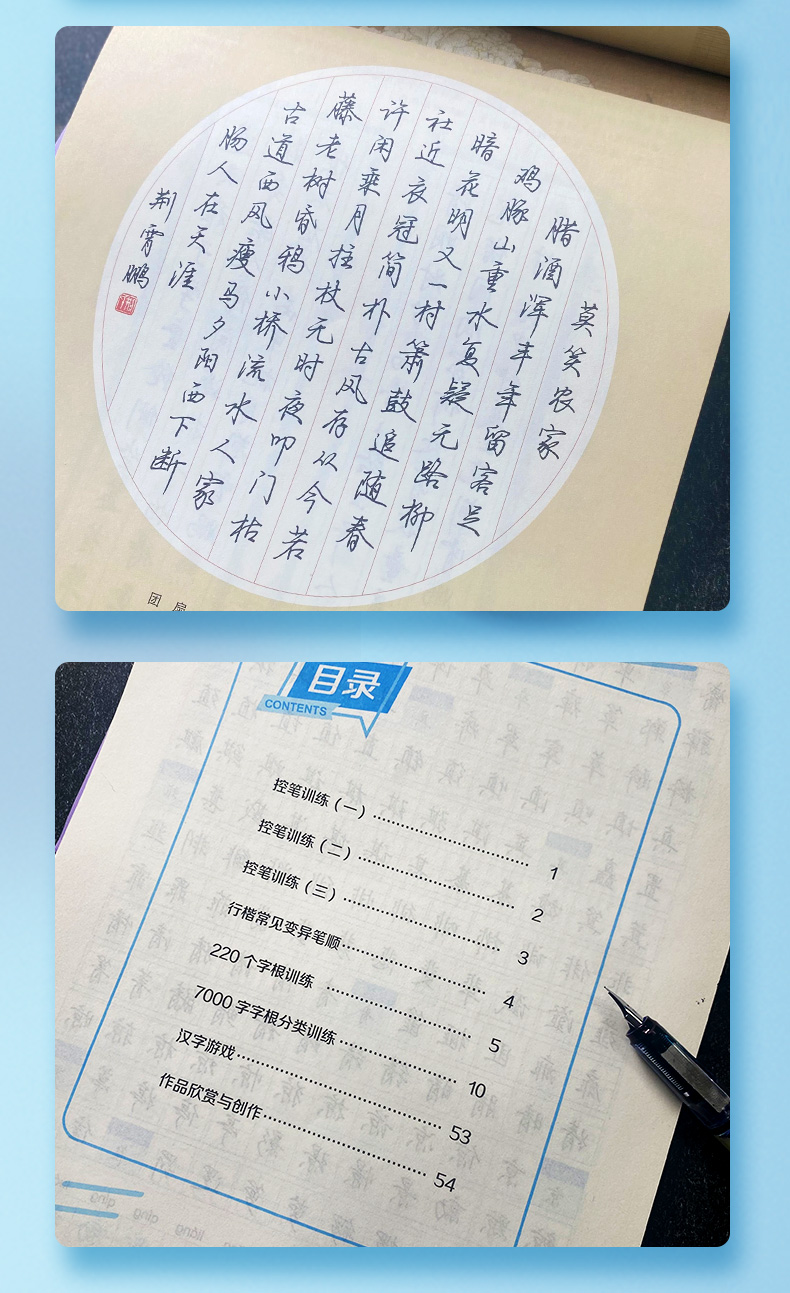 莫笑农家
腊酒浑丰年留客足
鸡豚山重水复疑无路柳
暗花明又一村箫鼓追随春
社近衣冠简朴古风存从今若
许闲乘月拄杖无时夜叩门枯
藤老树昏鸦小桥流水人家
古道西风瘦马夕阳西下断
肠人在天涯
荆霄鹏
团扇
目录
CONTENTS
控笔训练（一） 1
控笔训练（二） 2
控笔训练（三） 3
行楷常见变异笔顺 4
220个字根训练 5
7000字字根分类训练 10
汉字游戏 53
作品欣赏与创作 54